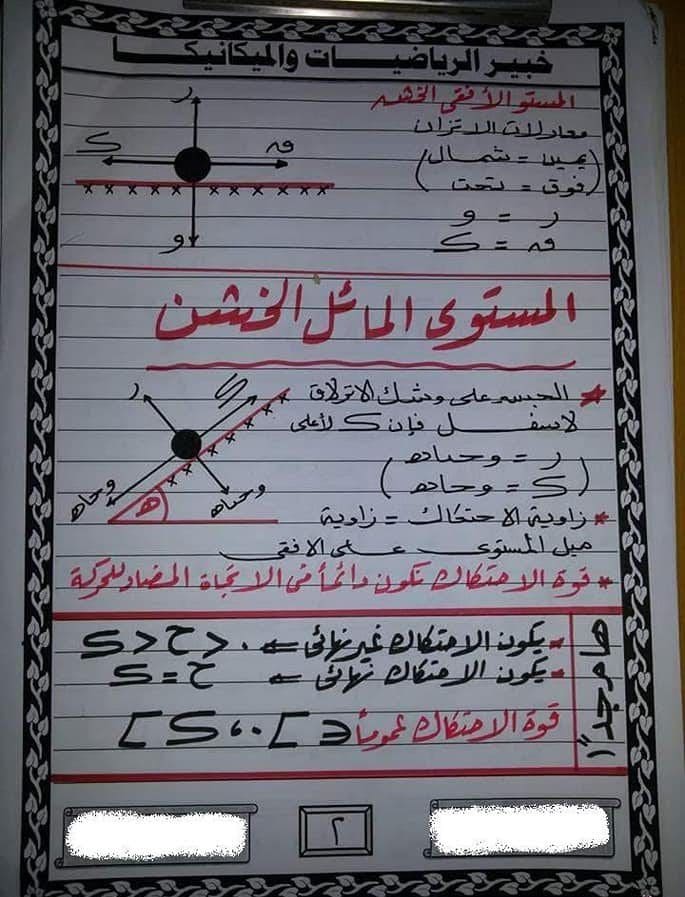 خبير الرياضيات والميكانيكا
المستو الأفقى الخشن
معادلات الاتزان
(يمين = شمال)
(فوق = تحت)
ر = و
ق = ك
ر
ك
ق
و
المستوى المائل الخشن
* الجسم على وشك الانزلاق
لاسفل فإن ك لأعلى
ر = و حتا هـ
ك = و حا هـ
* زاوية الاحتكاك = زاوية
ميل المستوى على الافقى
ر
ك
و حا هـ
و حتا هـ
هـ
* قوة الاحتكاك تكون دائماً فى الاتجاة المضاد للحركة
هام جداً
- يكون الاحتكاك غير نهائى ← ٠ < ح < ك
- يكون الاحتكاك نهائى ← ح = ك
قوة الاحتكاك عموماً ∈ ]٠، ك]
٢